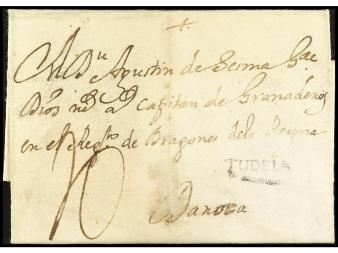 +
A Dn Agustin de Sesma Gde
Dios ms as Capitan de Granaderos
en el Regto de Dragones dela Reyna
TUDELA